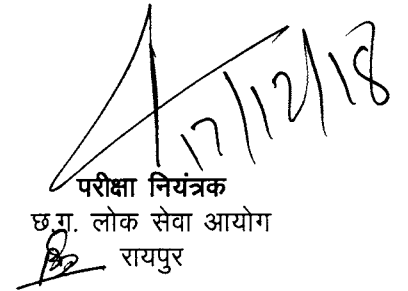 17/12/18
परीक्षा नियंत्रक
छ.ग. लोक सेवा आयोग
रायपुर